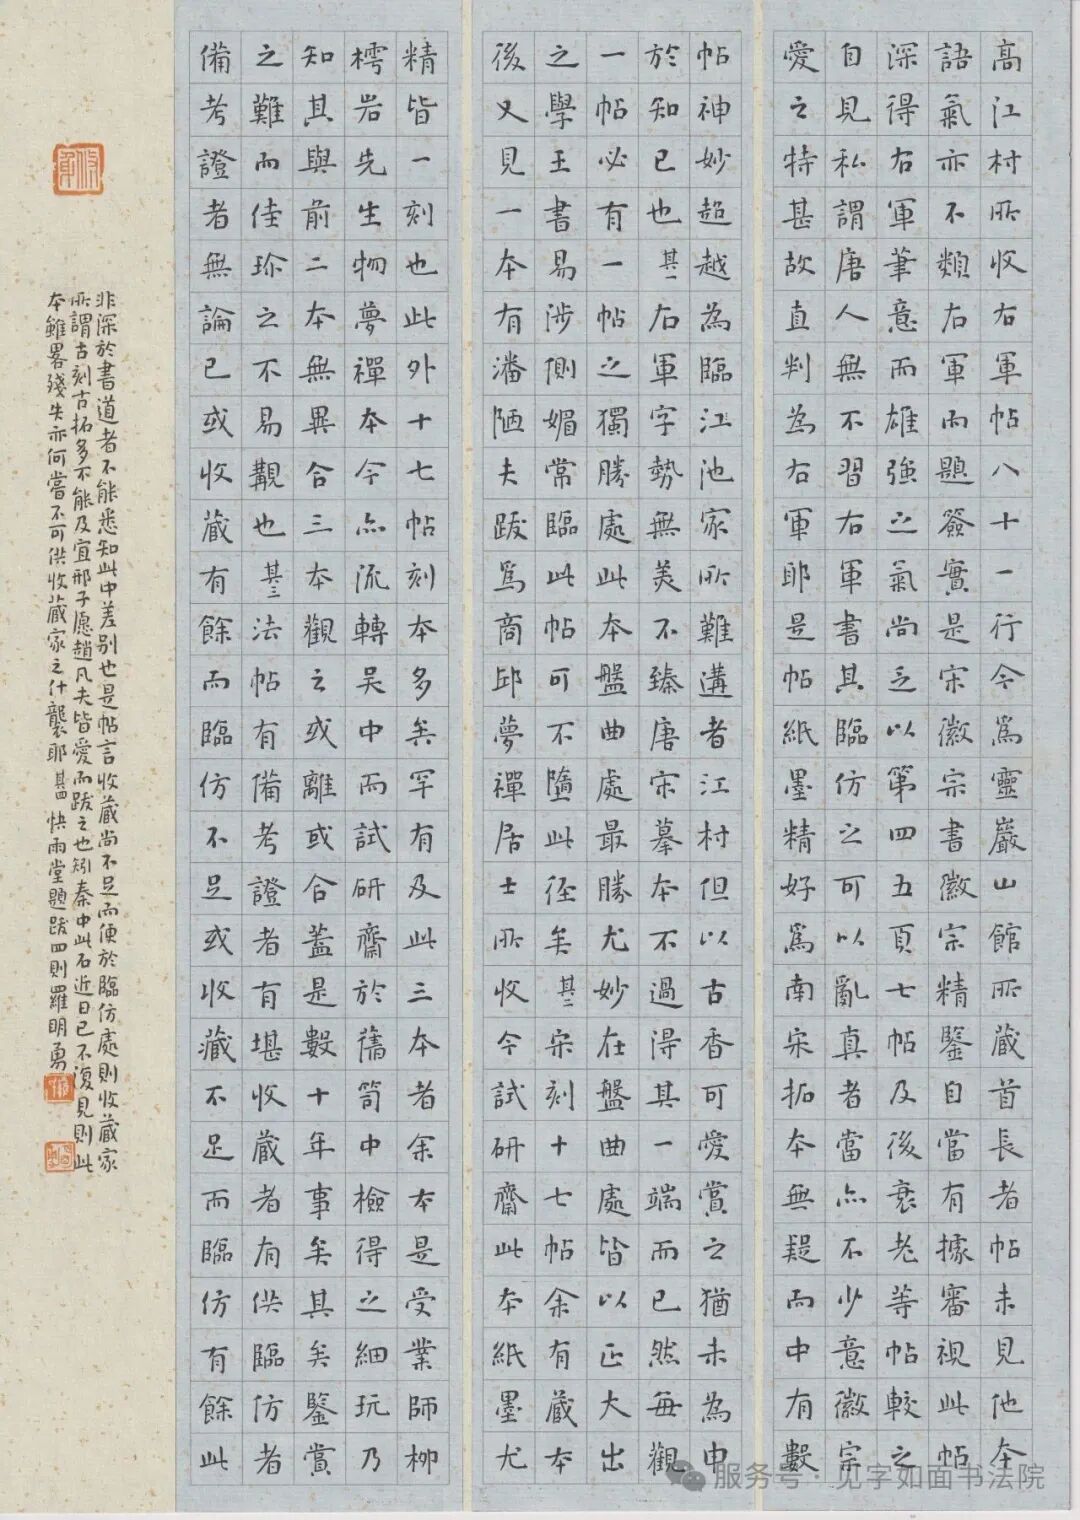 高江村所收右軍帖八十一行今爲靈巖山館所藏首長者帖未見他本
語氣亦不類右軍而題簽實是宋徽宗書徽宗精鑒自當有據審視此帖
深得右軍筆意而雄強之氣尚乏以第四五頁七帖及後衰老等帖較之
自見私謂唐人無不習右軍書其臨仿之可以亂真者當亦不少意徽宗
愛之特甚故直判為右軍耶是帖紙墨精好爲南宋拓本無疑而中有數
帖神妙超越為臨江池家所難遘者江村但以古香可愛賞之猶未為申
於知已也其一右軍字勢無美不臻唐宋摹本不過得其一端而已然每觀
一帖必有一帖之獨勝處此本盤曲處最勝尤妙在盤曲處皆以正大出
之學王書易涉側媚常臨此帖可不墮此徑矣其二宋刻十七帖余有藏本
後又見一本有潘陋夫跋爲商邱夢禪居士所收今試研齋此本紙墨尤
精皆一刻也此外十七帖刻本多矣罕有及此三本者余本是受業師柳
樗岩先生物夢禪本今亦流轉吴中而試研齋於舊笥中檢得之細玩乃
知其與前二本無異合三本觀之或離或合蓋是數十年事矣其矣鑒賞
之難而佳珍之不易覯也其三法帖有備考證者有堪收藏者有供臨仿者
備考證者無論已或收藏有餘而臨仿不足或收藏不足而臨仿有餘此
非深於書道者不能悉知此中差别也是帖言收藏尚不足而便於臨仿處則收藏家
所謂古刻古拓多不能及宜邢子愿趙凡夫皆愛而跋之也矧秦中此石近日已不復見則此
本雖畧殘失亦何嘗不可供收藏家之什襲耶其四快雨堂題跋四則羅明勇
服务号·见字如面书法院